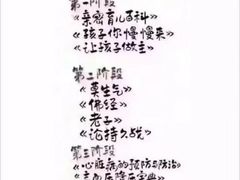 第一阶段
《亲密育儿百科》
《孩子你慢慢来》
《让孩子做主》
第二阶段
《莫生气》
《佛经》
《老子》
《论持久战》
第三阶段
《心脏病的预防与防治》
《高血压降压宝典》